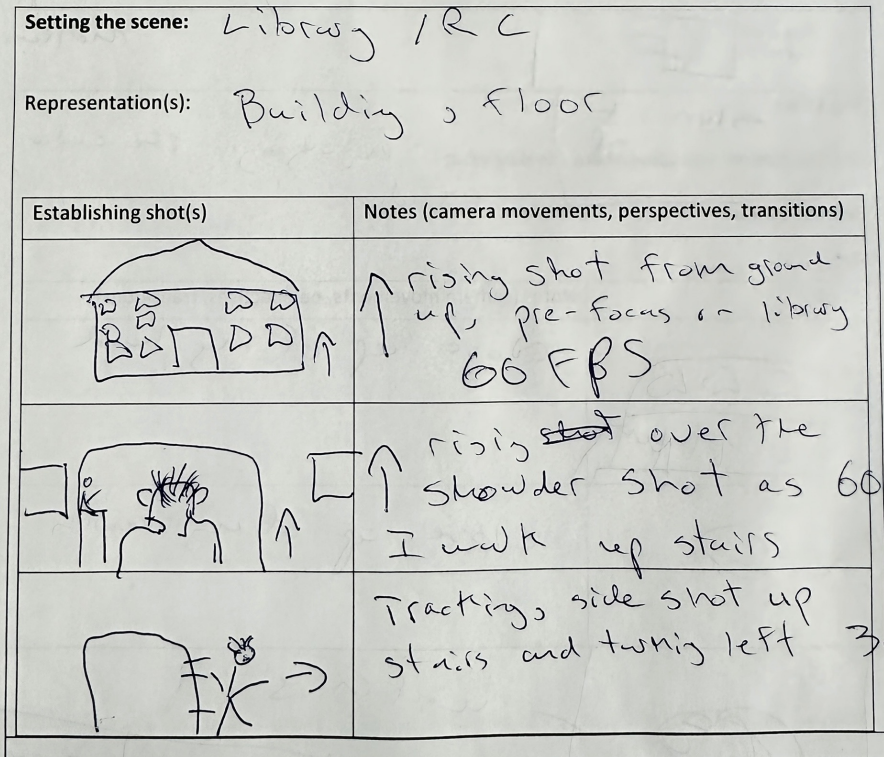 Setting the scene: Library / R C
Representation(s): Building, floor
Establishing shot(s)
Notes (camera movements, perspectives, transitions)
rising shot from ground
up, pre-focus on library
60 FPS
rising shot over the
shoulder shot as 60
I walk up stairs
Tracking, side shot up
stairs and turning left 3